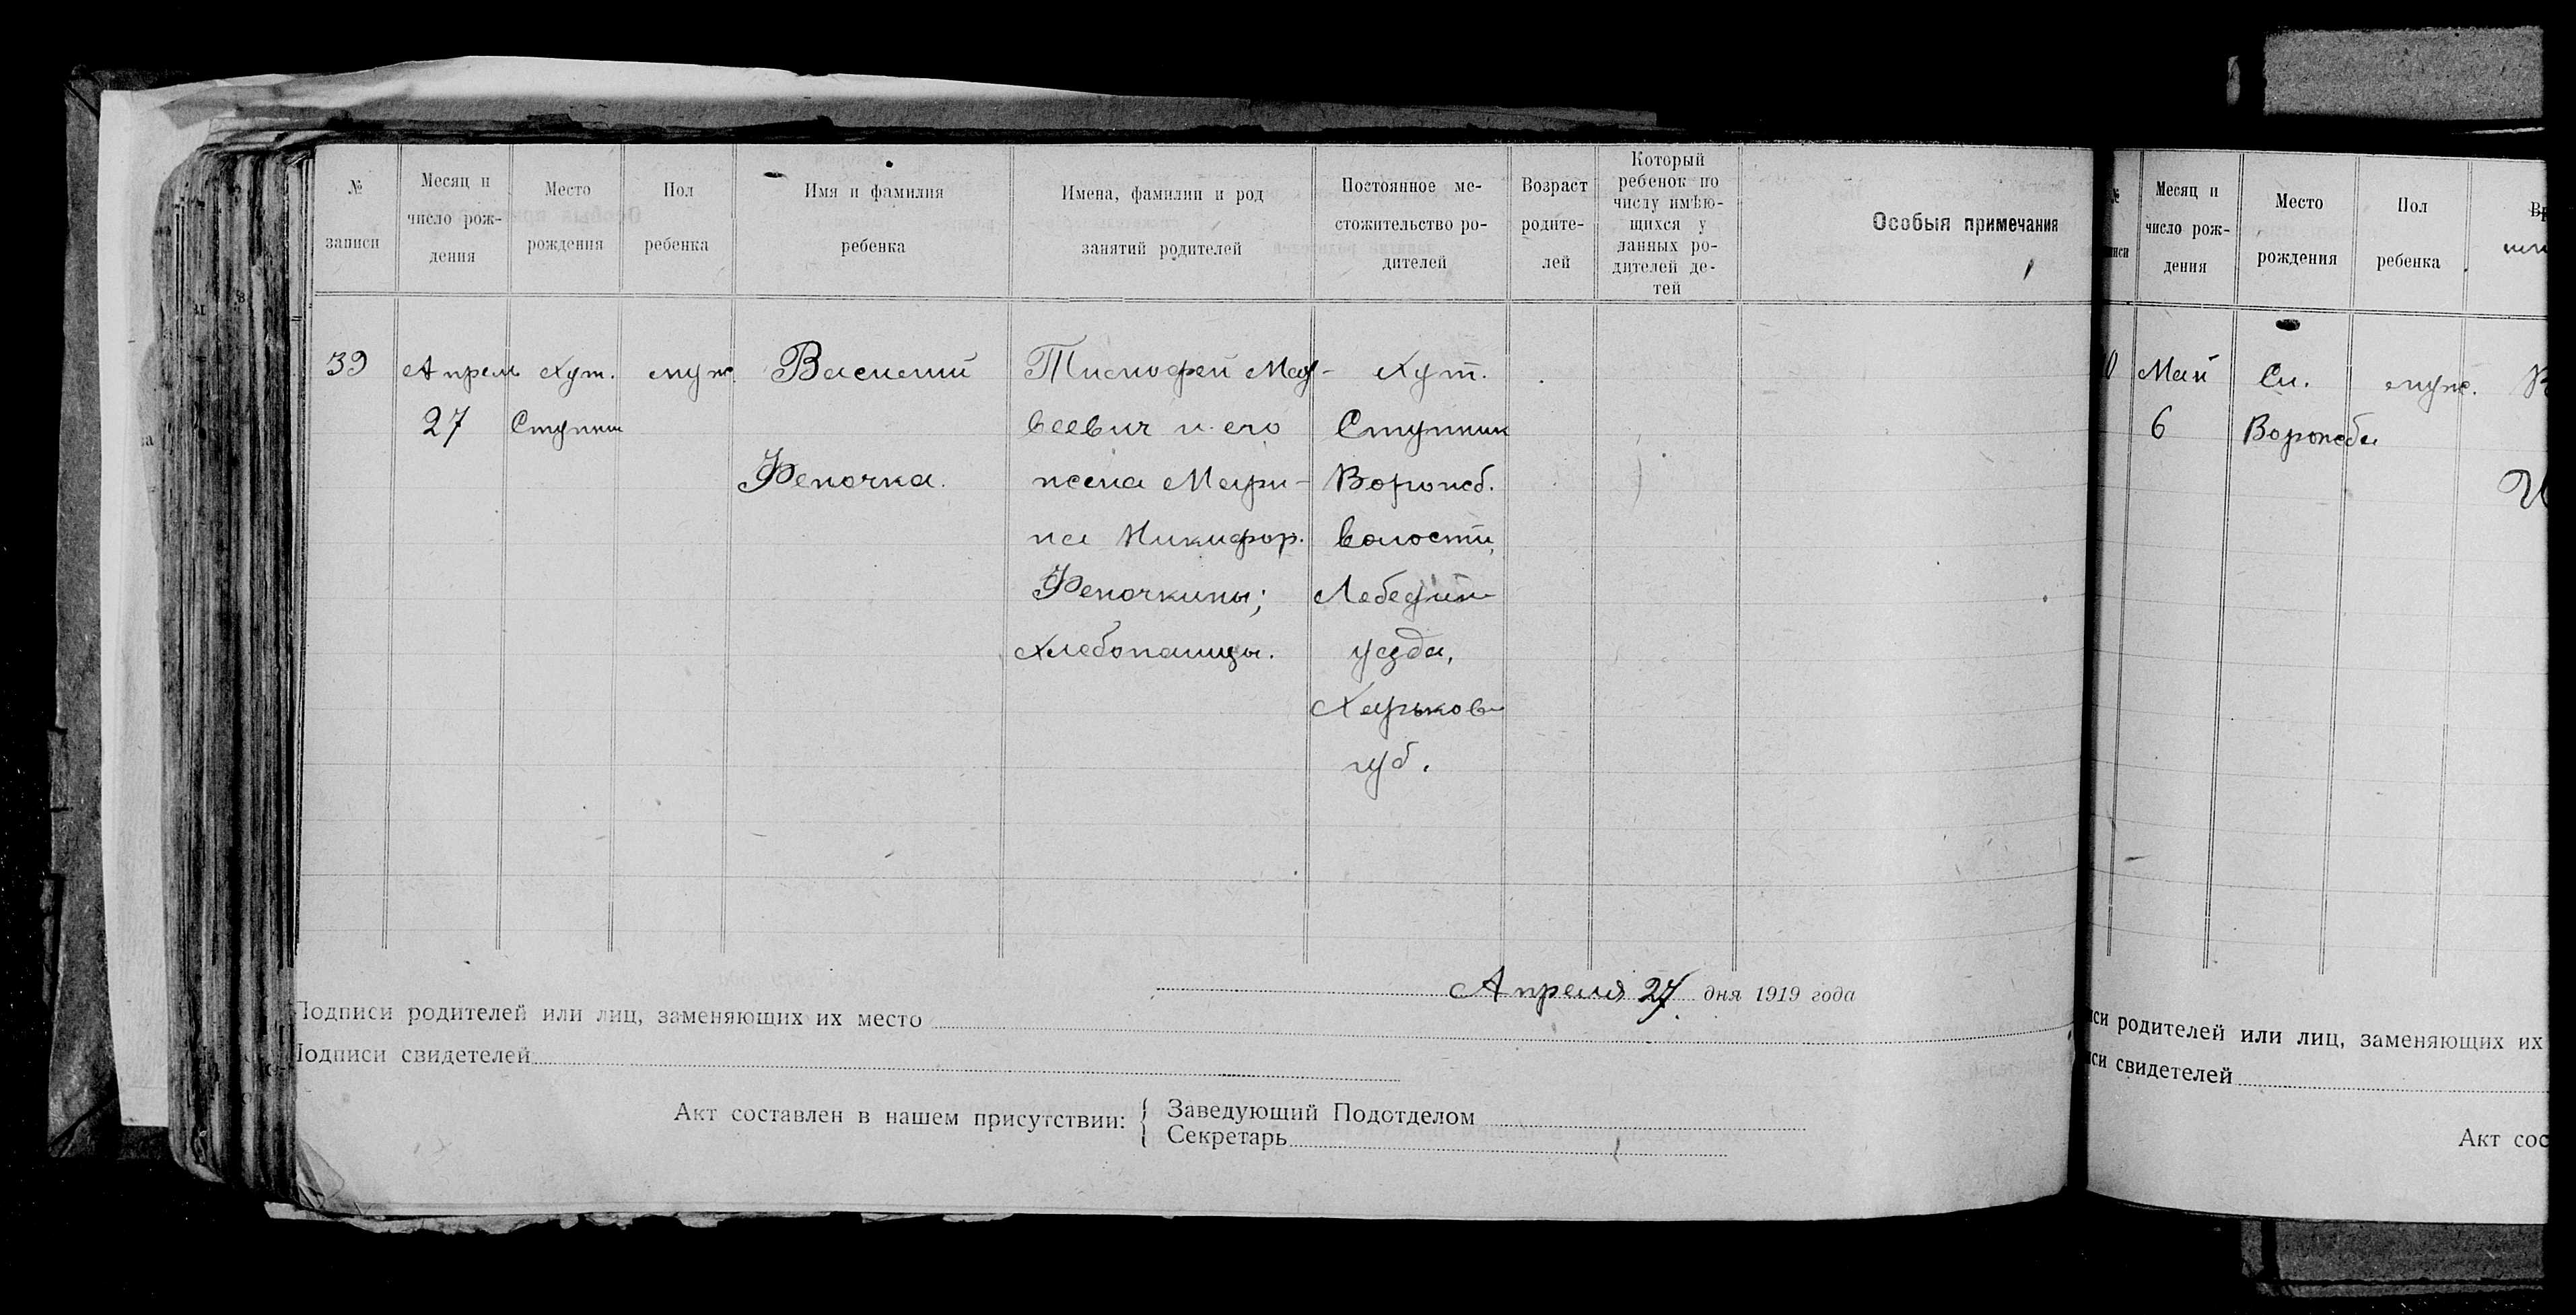 № записи
Месяц и число рождения
Место рождения
Пол ребенка
Имя и фамилия ребенка
Имена, фамилии и род занятий родителей
Постоянное местожительство родителей
Возраст родителей
Который ребенок по числу имѣющихся у данных родителей детей
Особыя примечания
39
Апрель
27
Хут.
Ступки
муж.
Василий
Феночка.
Тимофей Мат-
веевич и его
жена Мари-
на Никифор.
Феночкины;
хлебопашцы.
Хут.
Ступник
Ворожб.
волости,
Лебедин
уезда,
Харьков
губ.
Апреля 27 дня 1919 года
Подписи родителей или лиц, заменяющих их место
Подписи свидетелей
Акт составлен в нашем присутствии:
Заведующий Подотделом
Секретарь
Месяц и число рождения
Место рождения
Пол ребенка
Май
6
Сл.
Ворожба
муж.
родителей или лиц, заменяющих их
свидетелей
Акт сос